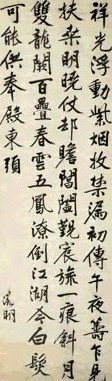 祥光浮動紫烟收禁漏初傳午夜籌下見
扶桑明曉仗却瞻閶闔覲宸旒一痕斜月
雙龍闕百疊春雲五鳳潦倒江湖今白髮
可能供奉殿東頭
徵明